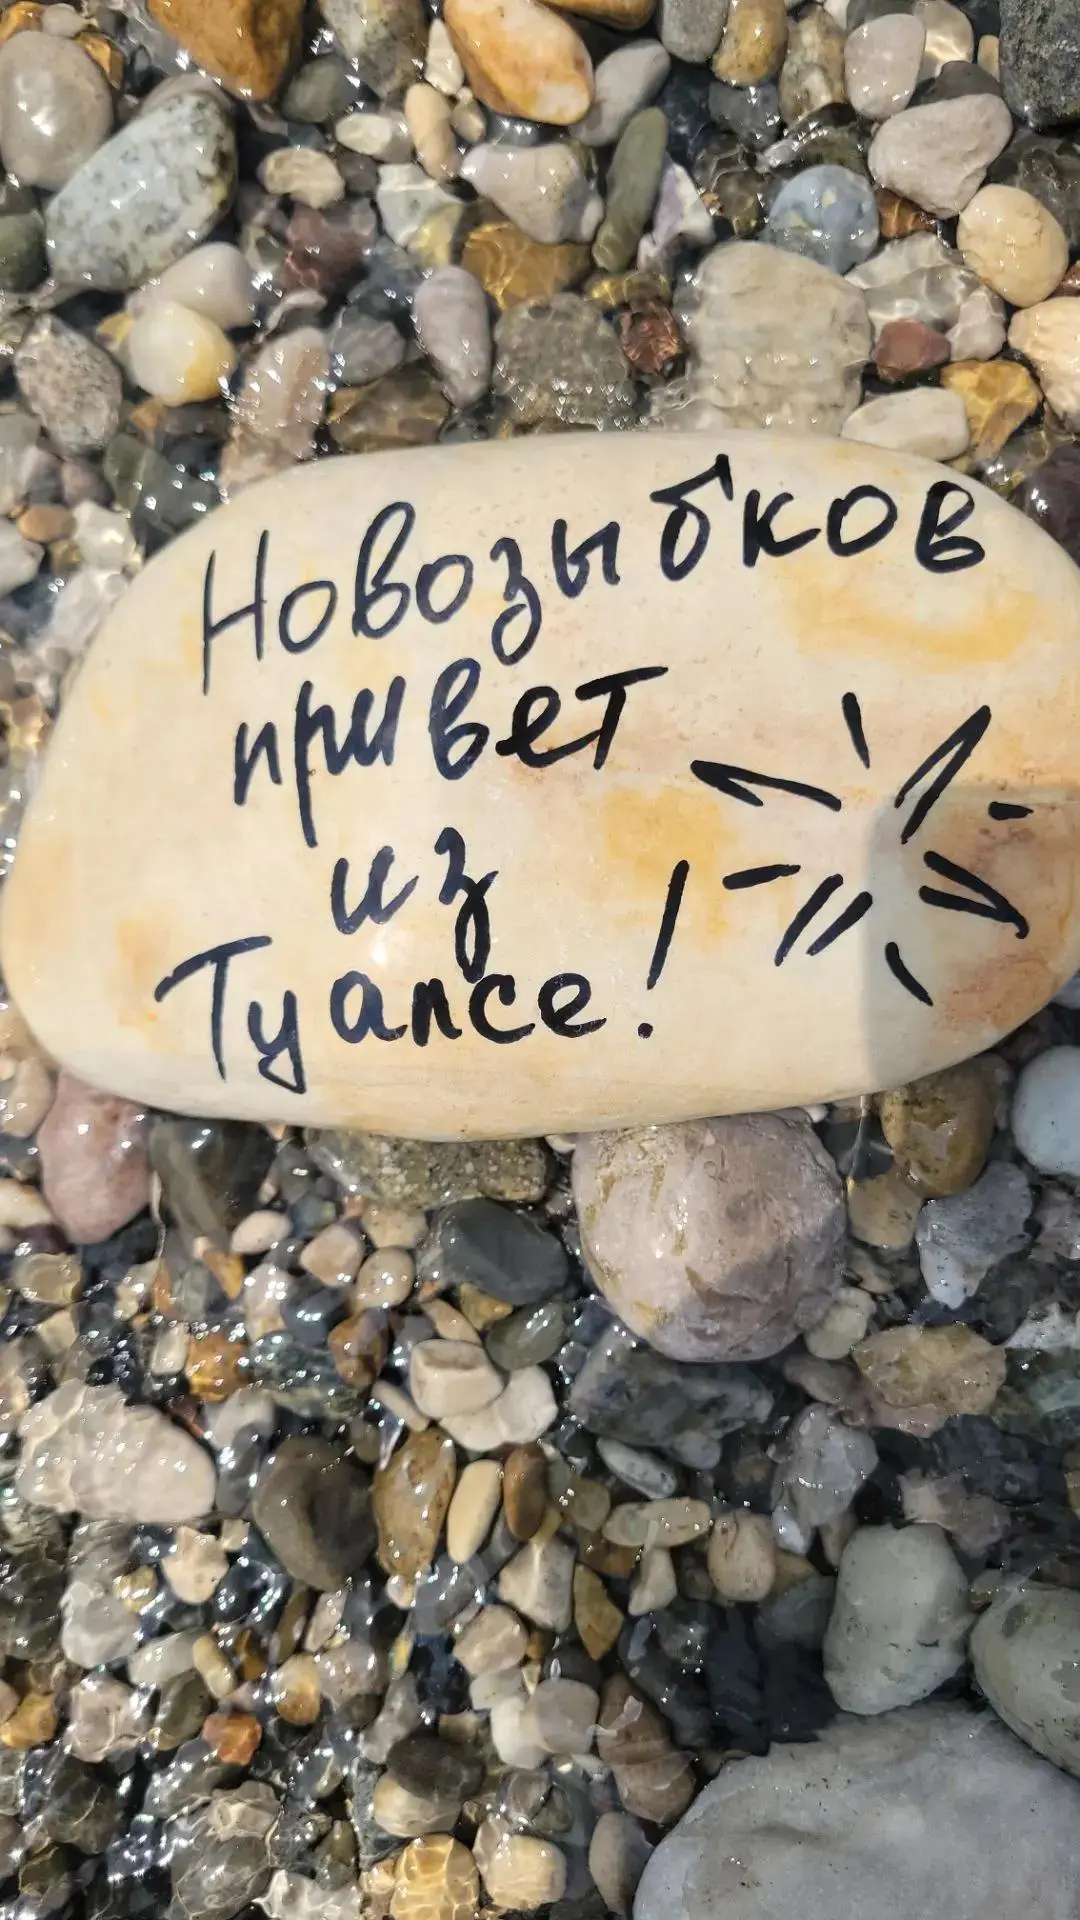 Новозыбков
привет
из
Туапсе!